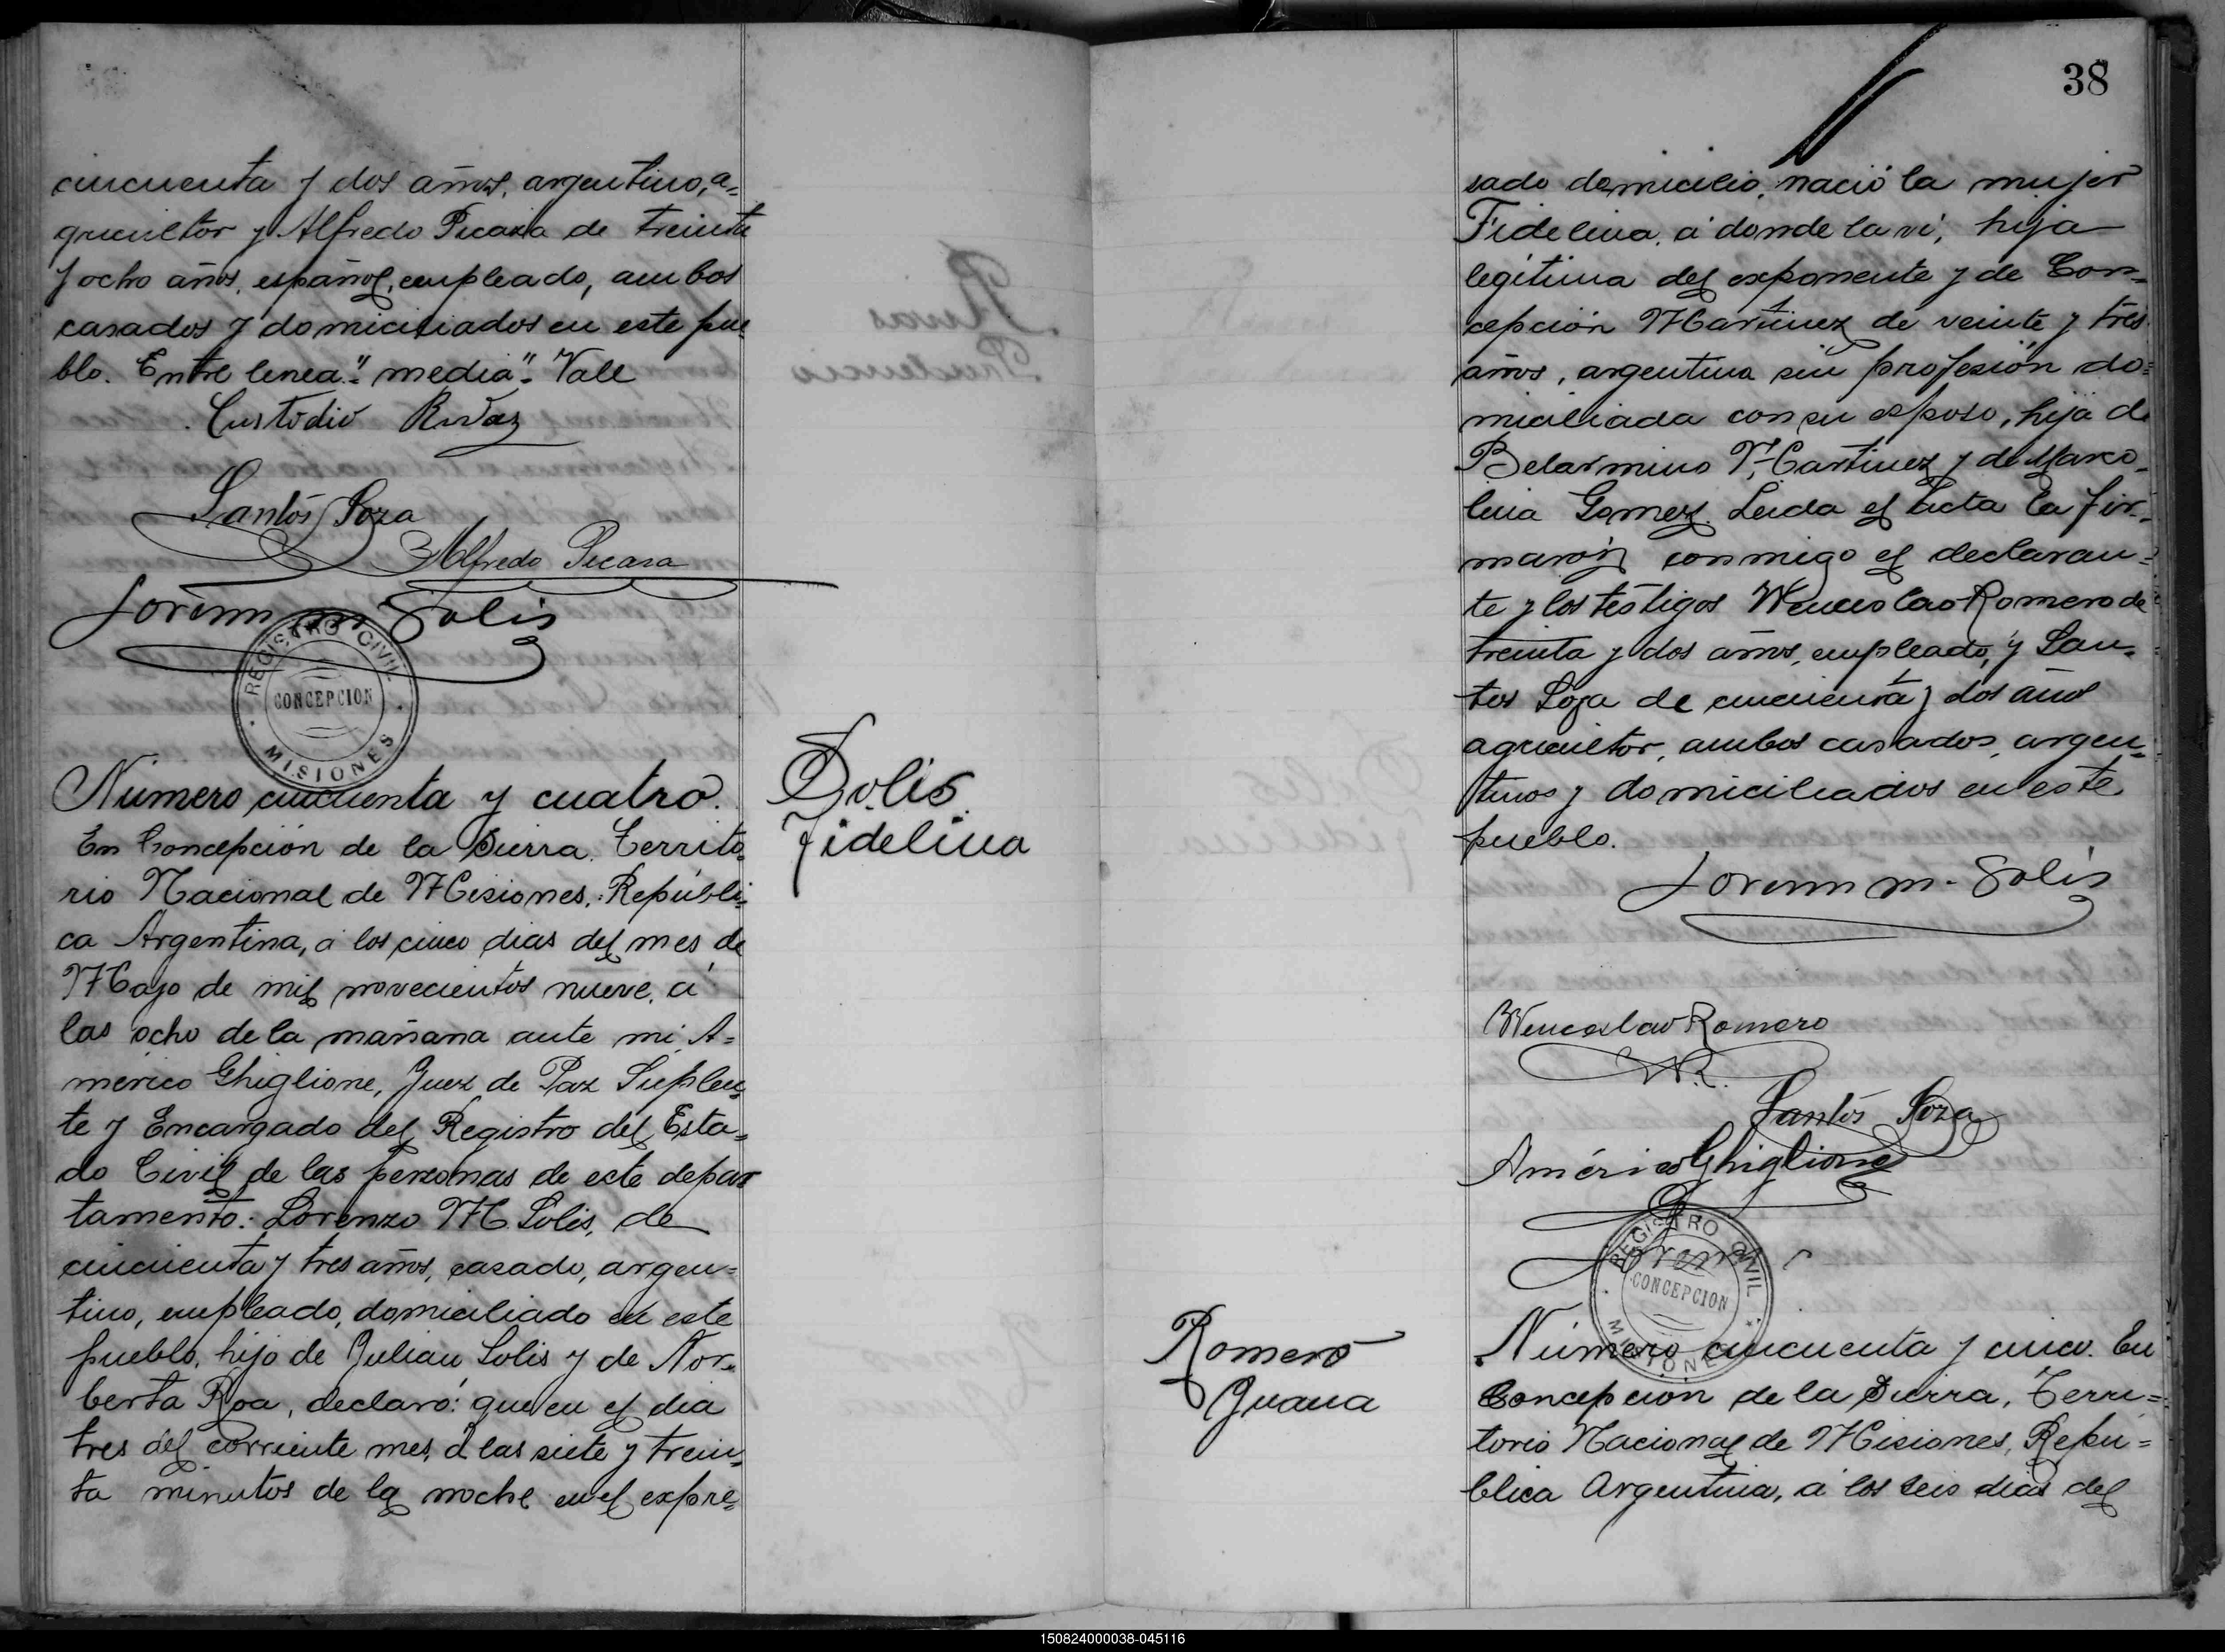 cincuenta y dos años, argentino, a=
gricultor y Alfredo Picaza de treinta
y ocho años, español, empleado, ambos
casados y domiciliados en este pue
blo. Entre linea "media" Vale
Custodio Rivaz
Santos Soza
Alfredo Picaza
Lorenzo M Solis
REGISTRO CIVIL
CONCEPCION
MISIONES
Número cincuenta y cuatro.
En Concepción de la Sierra. Territo=
rio Nacional de Misiones, Repúbli=
ca Argentina, á los cinco dias del mes de
Mayo de mil novecientos nueve, á
las ocho de la mañana ante mi, A=
mérico Ghiglione, Juez de Paz Suplen=
te y Encargado del Registro del Esta=
do Civil de las personas de este depar
tamento: Lorenzo M. Solis, de
cincuenta y tres años, casado, argen=
tino, empleado, domiciliado en este
pueblo, hijo de Julian Solis y de Nor=
berta Roa, declaró: que en el dia
tres del corriente mes, á las siete y trein=
ta minutos de la noche en el expre=
Solis
Fidelina
38
sado domicilio, nació la mujer
Fidelina, á donde la ví, hija
legítima del exponente y de Con=
cepción Martinez de veinte y tres
años, argentina sin profesión do=
miciliada con su esposo, hija de
Belarmino Martinez y de Marco=
lina Gomez. Leida el acta la fir=
marón conmigo el declaran=
te y los testigos Wenceslao Romero de
treinta y dos años, empleado, y San=
tos Soza de cincuenta y dos años
agricultor, ambos casados, argen=
tinos y domiciliados en este
pueblo.
Lorenzo M. Solis
Wenceslao Romero
W.R.
Santos Soza
Américo Ghiglione
REGISTRO CIVIL
CONCEPCION
MISIONES
Romero
Juana
Número cincuenta y cinco. En
Concepcion de la Sierra, Terri=
torio Nacional de Misiones, Repú=
blica Argentina, á los seis dias del
150824000038-045116